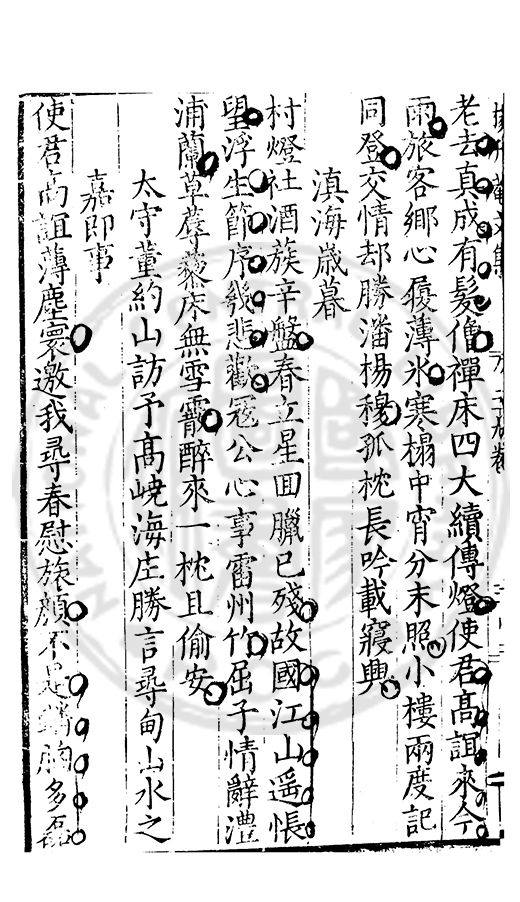 老去真成有髮僧禪床四大續傳燈使君高誼來今
雨旅客鄉心履薄氷寒榻中宵分末照小樓兩度記
同登交情却勝潘楊穆孤枕長吟載寢興
滇海歲暮
村燈社酒簇辛盤春立星回臘已殘故國江山遥悵
望浮生節序幾悲歡冦公心事雷州竹屈子情辭澧
浦蘭草蓐藜床無雪霰醉來一枕且偷安
太守董約山訪予高嶢海庄勝言尋甸山水之
嘉即事
使君高誼薄塵寰邀我尋春慰旅顏不是胸多磊